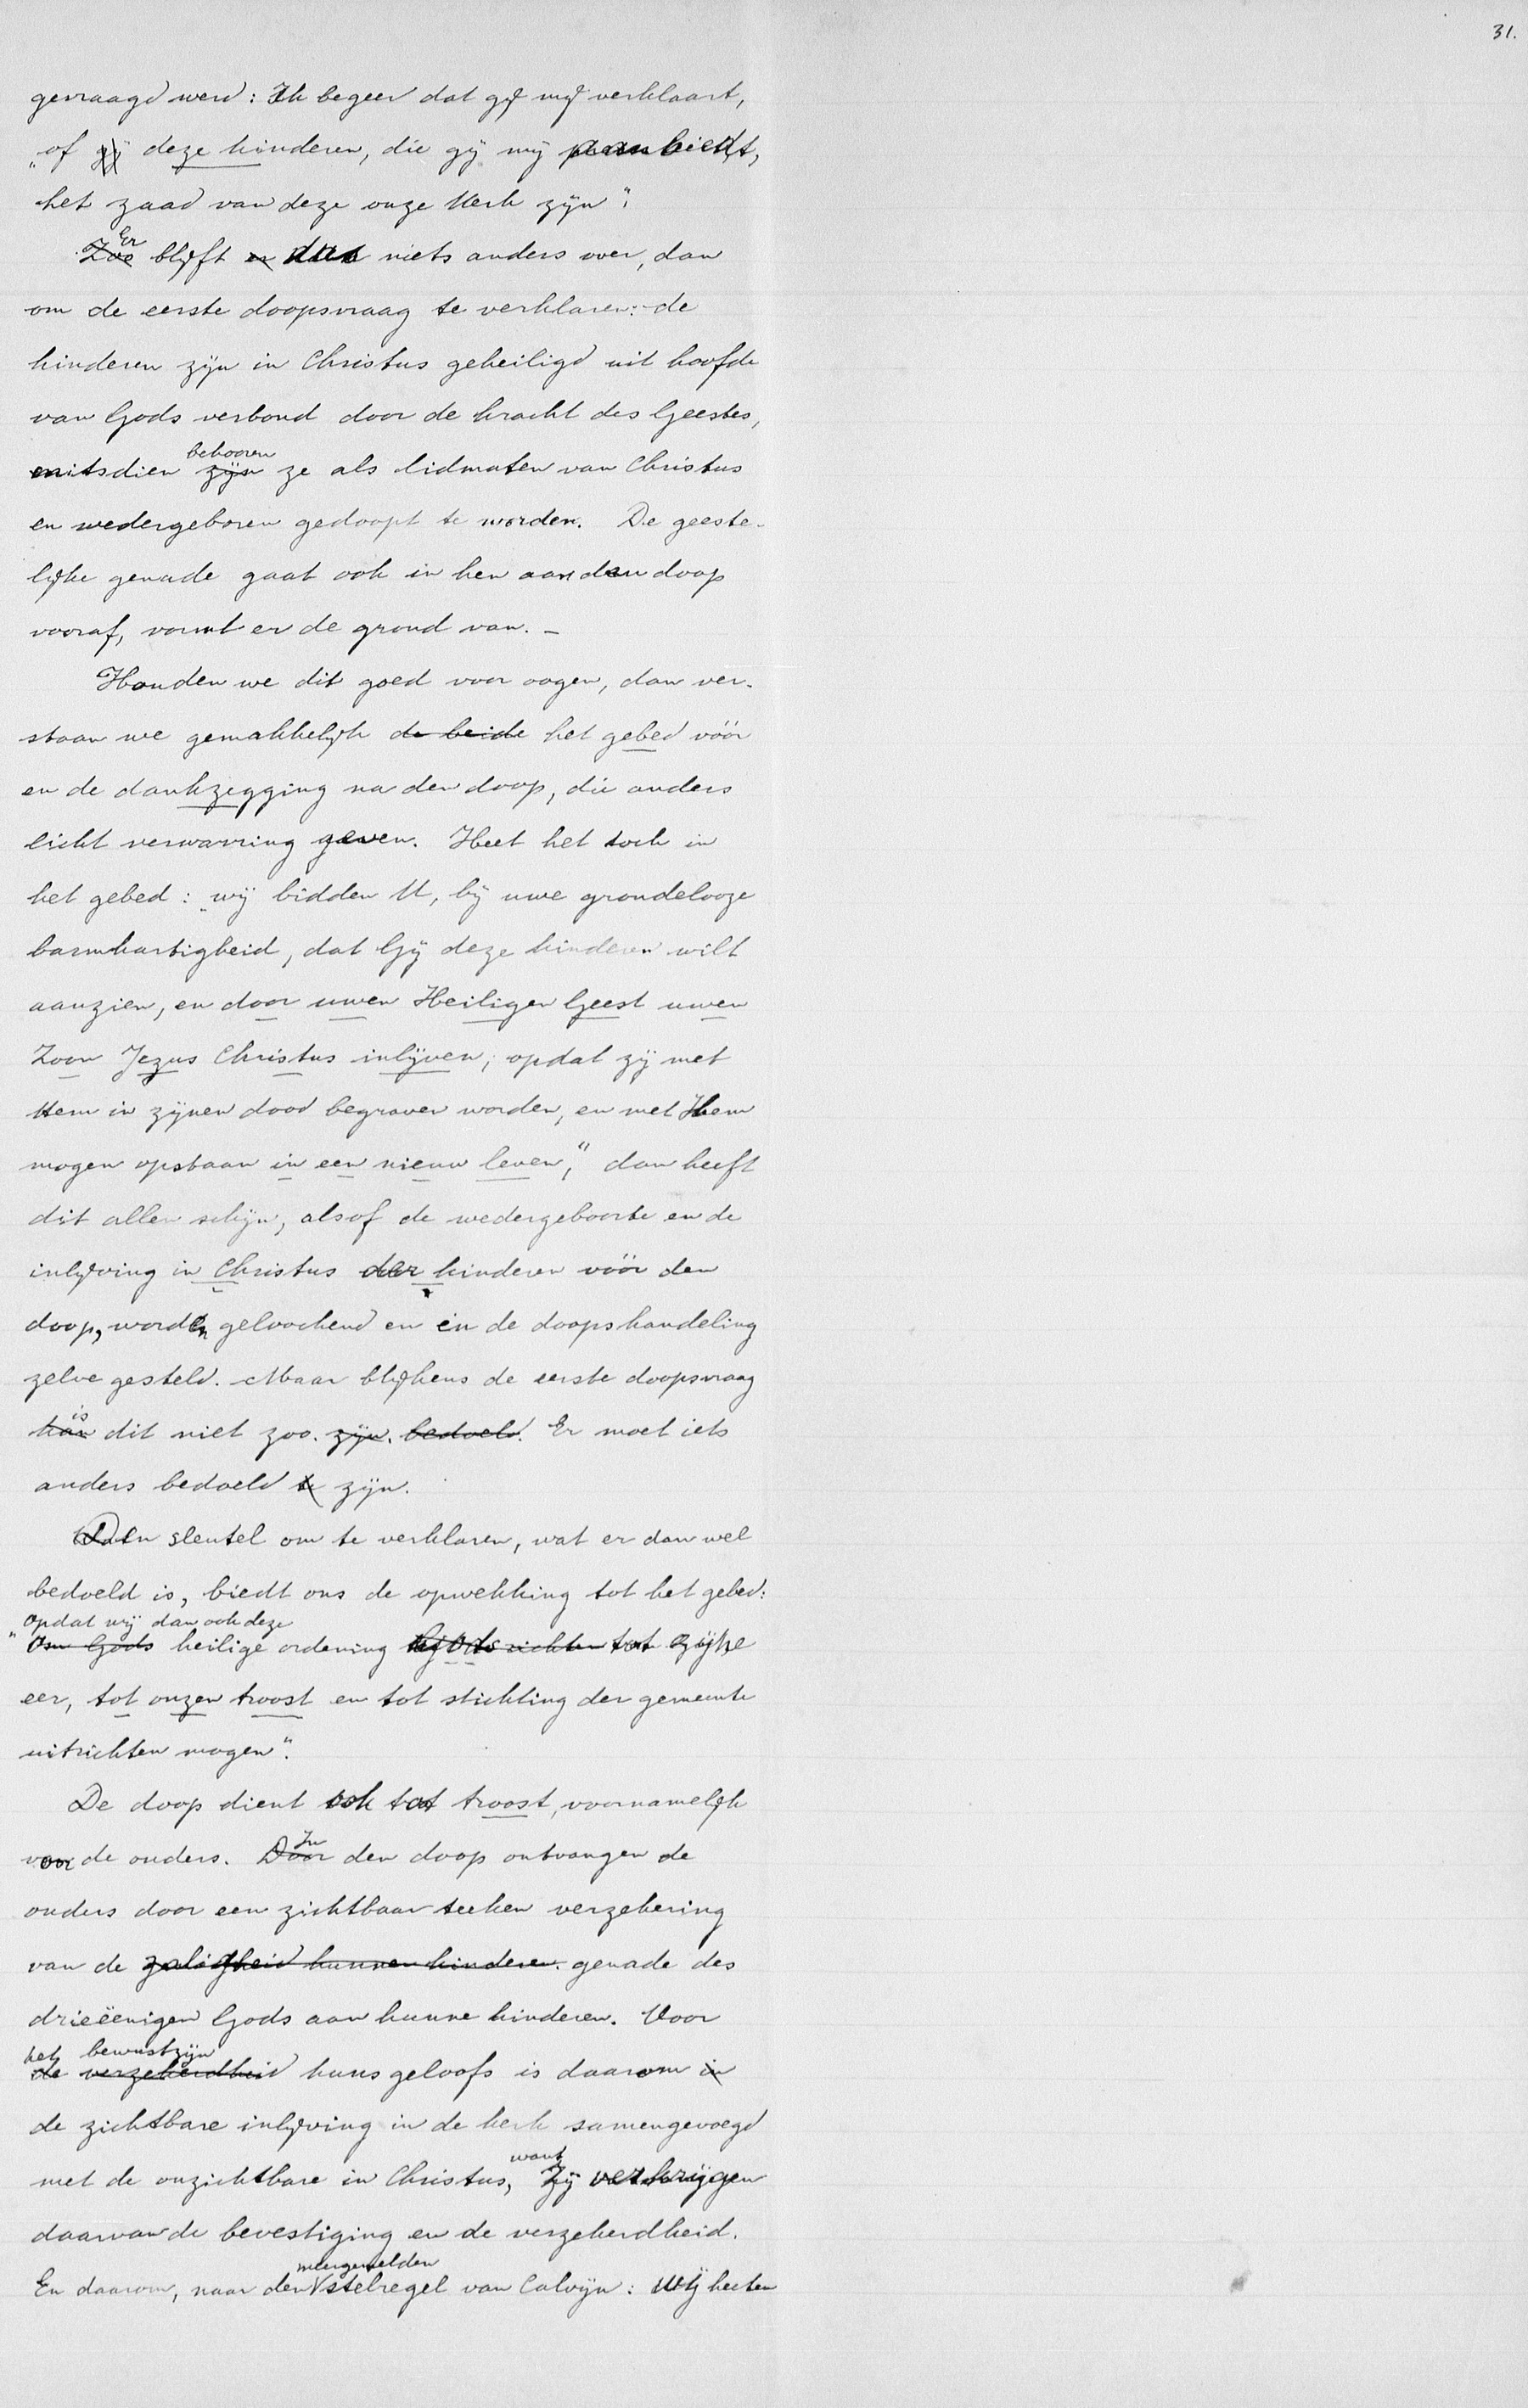 31.
gevraagd werd: Ik begeer dat gij mij verklaart,
„of gij deze kinderen, die gij mij aanbiedt,
het zaad van deze onze Kerk zijn".
Er
Zoo blijft er dus niets anders over, dan
om de eerste doopsvraag te verklaren: de
kinderen zijn in Christus geheiligd uit hoofde
van Gods verbond door de kracht des Geestes,
behooren
mitsdien zijn ze als lidmaten van Christus
en wedergeboren gedoopt te worden. De geeste-
lijke genade gaat ook in hen aan den doop
vooraf, vormt er de grond van. –
Houden we dit goed voor oogen, dan ver-
staan we gemakkelijk de beide het gebed vóór
en de dankzegging na den doop, die anders
licht verwarring geven. Heet het toch in
het gebed: „wij bidden U, bij uwe grondelooze
barmhartigheid, dat Gij deze kinderen wilt
aanzien, en door uwen Heiligen Geest uwen
Zoon Jezus Christus inlijven; opdat zij met
Hem in zijnen dood begraven worden, en met Hem
mogen opstaan in een nieuw leven," dan heeft
dit allen schijn, alsof de wedergeboorte en de
inlijving in Christus der kinderen vóór den
doop, worden geloochend en in de doopshandeling
zelve gesteld. Maar blijkens de eerste doopsvraag
is
kan dit niet zoo. zijn. bedoeld. Er moet iets
anders bedoeld te zijn.
Den sleutel om te verklaren, wat er dan wel
bedoeld is, biedt ons de opwekking tot het gebed:
„Opdat wij dan ook deze
Om Gods heilige ordening tot zijne
eer, tot onzen troost en tot stichting der gemeente
uitrichten mogen".
De doop dient ook tot troost, voornamelijk
In
voor de ouders. Door den doop ontvangen de
ouders door een zichtbaar teeken verzekering
van de zaligheid hunner kinderen. genade des
drieëenigen Gods aan hunne kinderen. Voor
het bewustzijn
de verzekerdheid huns geloofs is daarom in
de zichtbare inlijving in de kerk samengevoegd
want
met de onzichtbare in Christus, Zij verkrijgen
daarvan de bevestiging en de verzekerdheid.
meergemelden
En daarom, naar den stelregel van Calvijn: Wij heeten